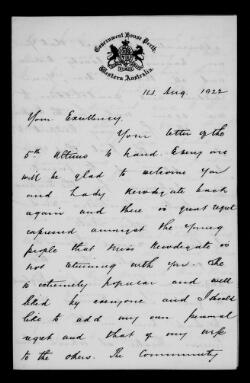 Government House Perth
Western Australia.
14 Aug. 1922
Your Excellency,
Your letter of the
5th ultimo to hand. Every one
will be glad to welcome you
and Lady Newdegate back
again and there is great regret
expressed amongst the young
people that Miss Newdegate is
not returning with you. She
is extremely popular and well
liked by everyone and I should
like to add my own personal
regret and that of my wife
to the others. The Community